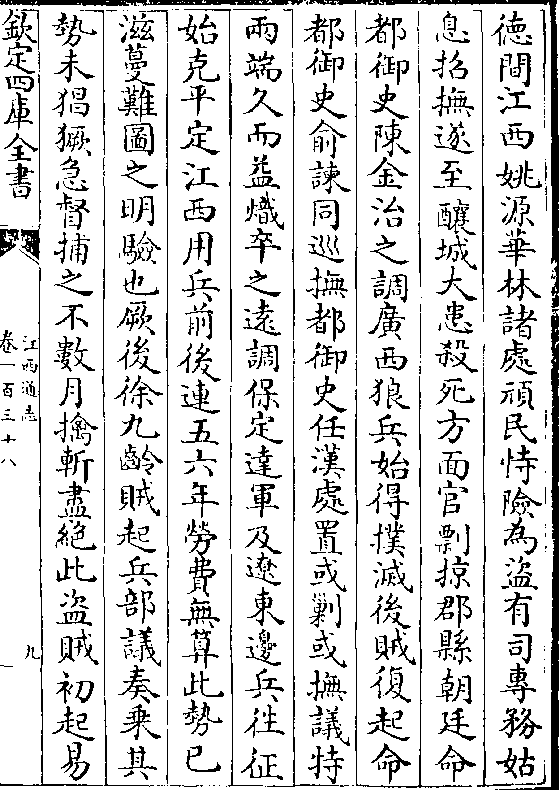 德間江西姚源華林諸處頑民恃險為盜有司專務姑
息招撫遂至釀城大患殺死方面官剽掠郡縣朝廷命
都御史陳金治之調廣西狼兵始得撲滅後賊復起命
都御史俞諫同巡撫都御史任漢處置或剿或撫議持
兩端久而益熾卒之遠調保定達軍及遼東邊兵徃征
始克平定江西用兵前後連五六年勞費無算此勢已
滋蔓難圖之明驗也厥後徐九齡賊起兵部議奏乗其
勢未猖獗急督捕之不數月擒斬盡絕此盜賊初起易
欽定四庫全書
江西通志
卷一百三十八
九